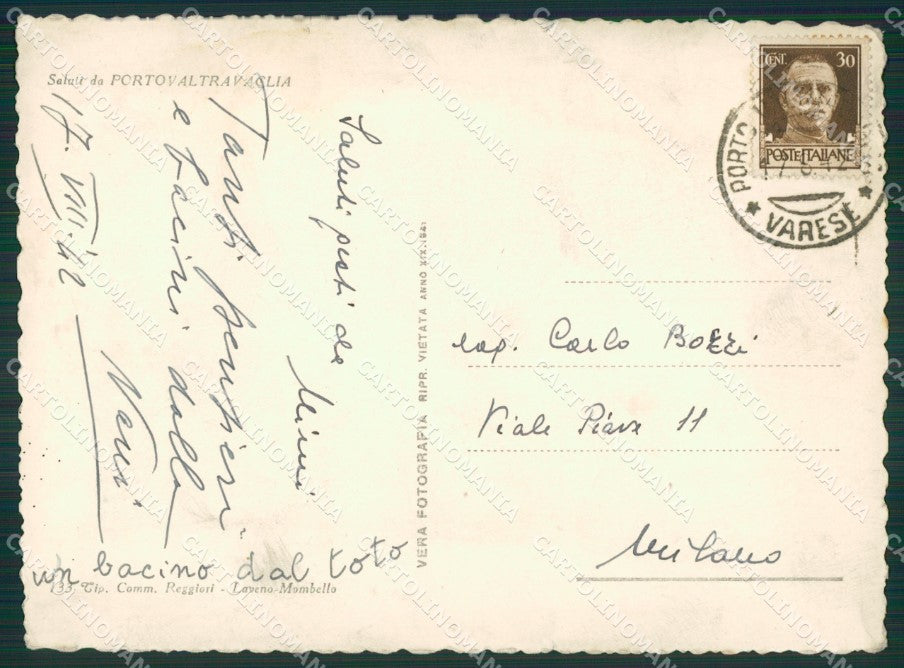 Saluti da PORTOVALTRAVAGLIA
17. VIII. 42
Tanti pensieri
e bacini dalla
Nenni
Saluti puati da
Mimi
un bacino dal toto
133, Tip. Comm. Reggiori - Laveno-Mombello
VERA FOTOGRAFIA RIPR. VIETATA ANNO XIX.1941
CENT. 30
POSTE ITALIANE
PORTO
VARESE
rag. Carlo Bozzi
Viale Piave 11
Milano
CARTOLINOMANIA